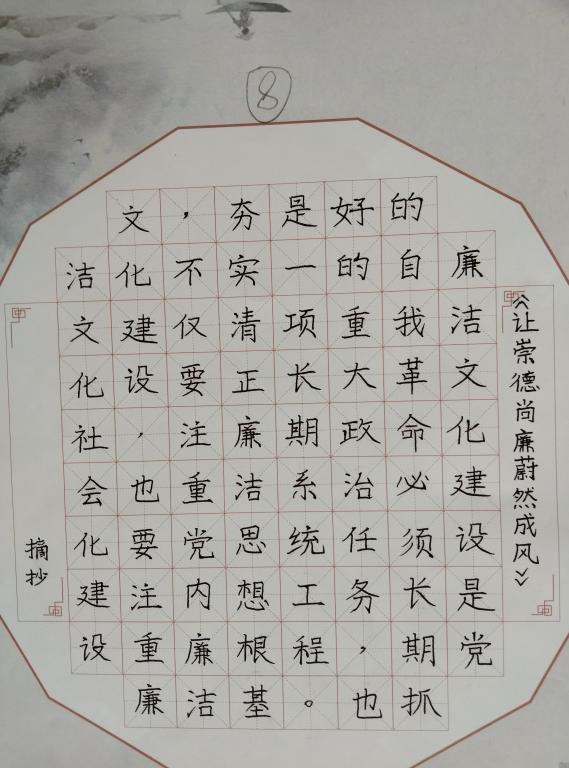 ⑧
《让崇德尚廉蔚然成风》
廉洁文化建设是党
的自我革命必须长期抓
好的重大政治任务，也
是一项长期系统工程。
夯实清正廉洁思想根基
，不仅要注重党内廉洁
文化建设，也要注重廉
洁文化社会化建设
摘抄